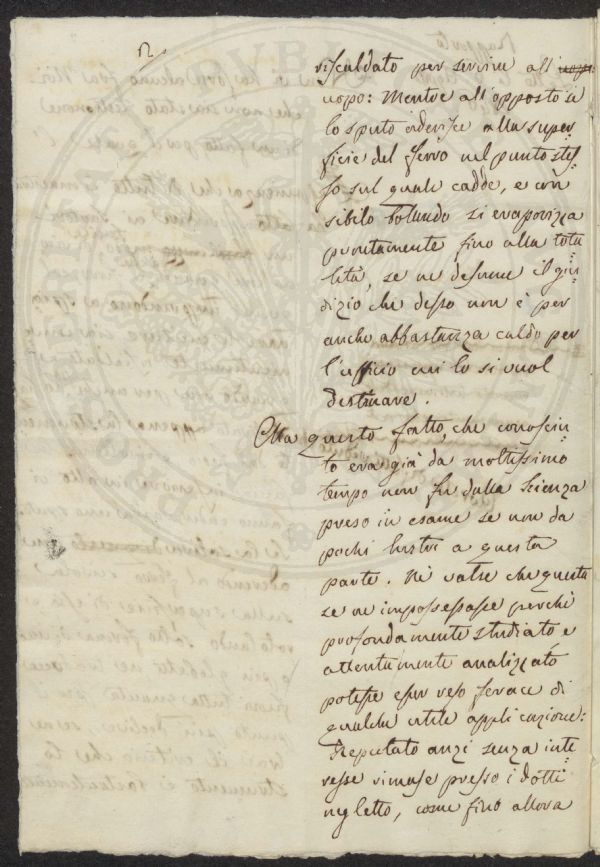 2.
riscaldato per servire all'
uopo: Mentre all'opposto se
lo sputo aderisce alla super
ficie del ferro nel punto stes
so sul quale cadde, e con
sibilo bollendo si evaporizza
prontamente fino alla tota
lità, se ne desume il giu
dizio che desso non è per
anche abbastanza caldo per
l'ufficio cui lo si vuol
destinare.
Ma questo fatto, che conosciu
to era già da moltissimo
tempo non fu dalla Scienza
preso in esame se non da
pochi lustri a questa
parte. Nè valse che questa
se ne impossessasse perchè
profondamente studiato e
attentamente analizzato
potesse esser reso ferace di
qualche utile applicazione:
Reputato anzi senza inte
resse rimase presso i dotti
negletto, come fino allora